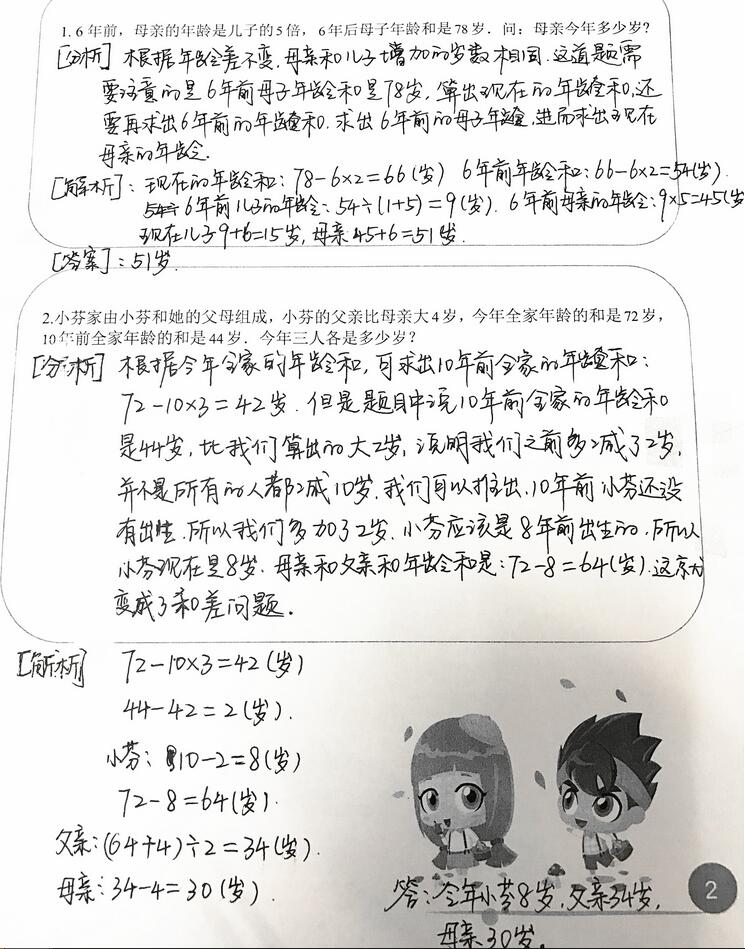 1. 6 年前，母亲的年龄是儿子的 5 倍，6 年后母子年龄和是 78 岁．问：母亲今年多少岁？
[分析] 根据年龄差不变，母亲和儿子增加的岁数相同．这道题需
要注意的是6年前母子年龄和是78岁，算出现在的年龄和，还
要再求出6年前的年龄和．求出6年前的母子年龄，进而求出现在
母亲的年龄．
[解析]：现在的年龄和：78－6×2＝66(岁) 6年前年龄和：66－6×2＝54(岁)．
6年前儿子的年龄：54÷(1+5)＝9(岁)．6年前母亲的年龄：9×5＝45(岁
现在儿子9+6＝15岁，母亲45+6＝51岁．
[答案]：51岁．
2.小芬家由小芬和她的父母组成，小芬的父亲比母亲大 4 岁，今年全家年龄的和是 72 岁，
10 年前全家年龄的和是 44 岁．今年三人各是多少岁？
[分析] 根据今年全家的年龄和，可求出10年前全家的年龄和：
72－10×3＝42岁．但是题目中说10年前全家的年龄和
是44岁，比我们算出的大2岁，说明我们之前多减了2岁，
并不是所有的人都减10岁．我们可以推出，10年前小芬还没
有出生．所以我们多加了2岁．小芬应该是8年前出生的，所以
小芬现在是8岁．母亲和父亲和年龄和是：72－8＝64(岁)．这就
变成了和差问题．
[解析] 72－10×3＝42(岁)
44－42＝2(岁)．
小芬：10－2＝8(岁)
72－8＝64(岁)．
父亲：(64+4)÷2＝34(岁)．
母亲：34－4＝30(岁)．
答：今年小芬8岁，父亲34岁，
母亲30岁．
2